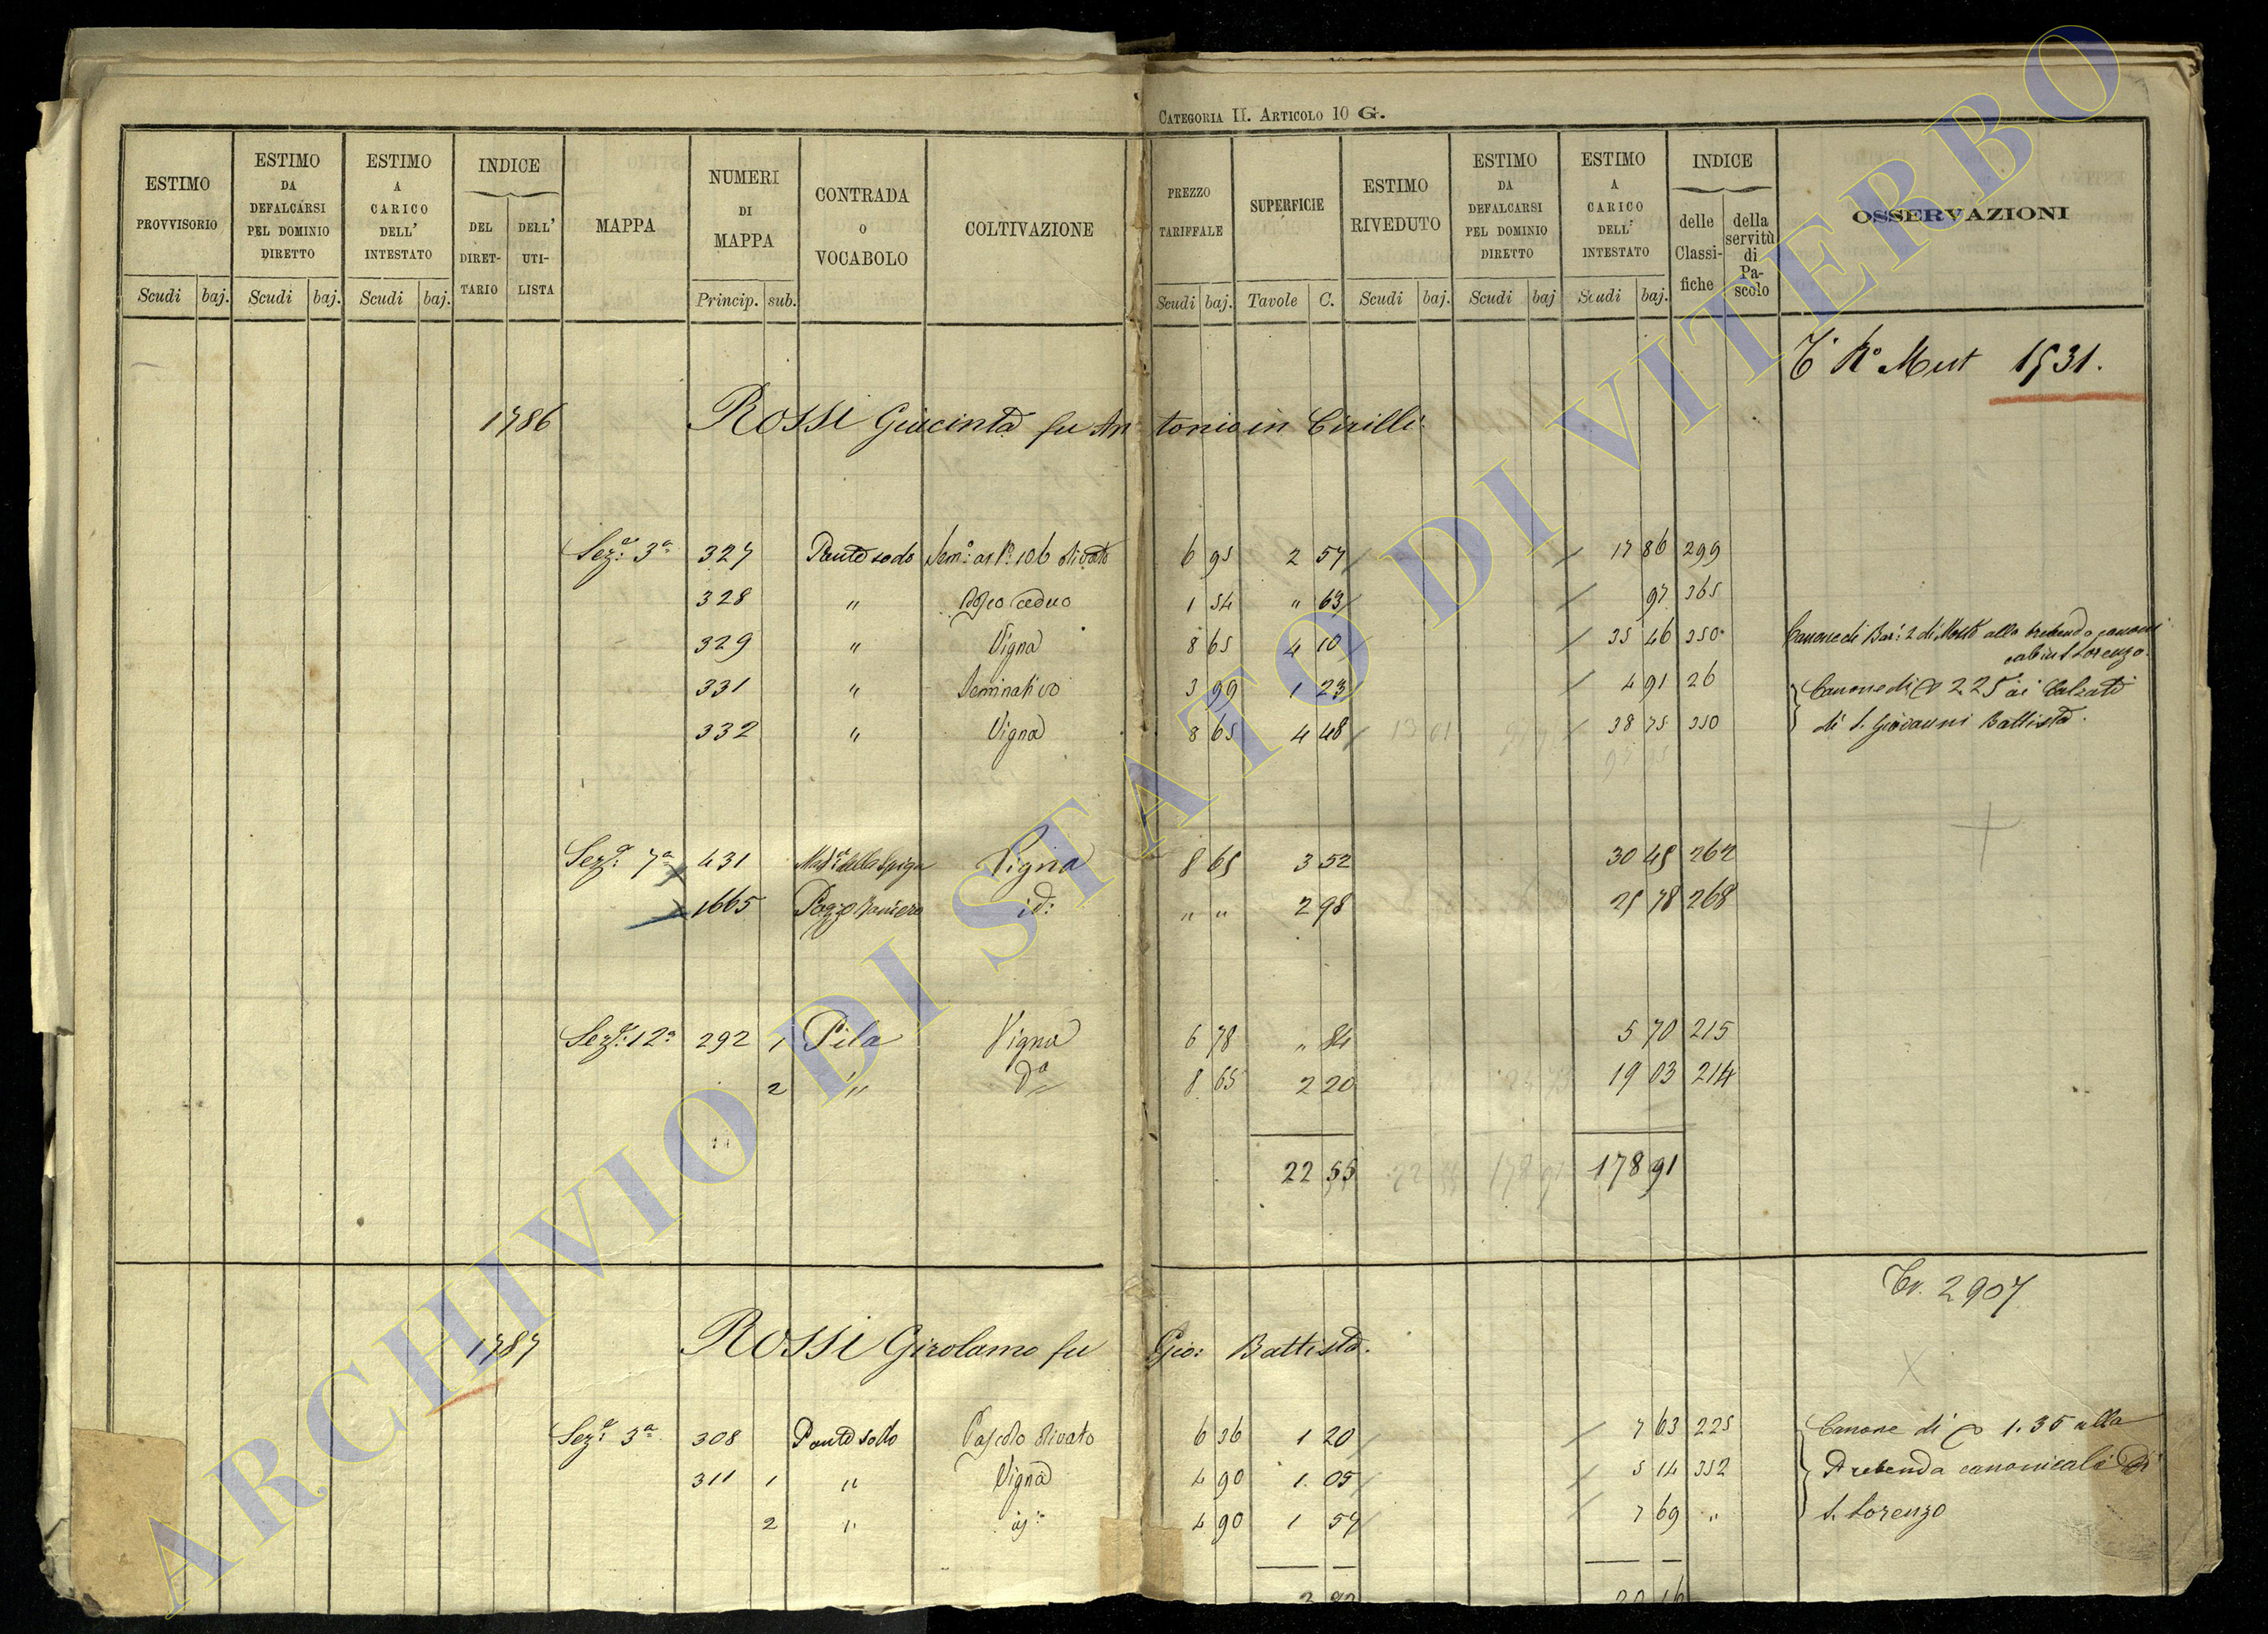 CATEGORIA II. ARTICOLO 10 G.
ESTIMO PROVVISORIO Scudi baj. | ESTIMO DA DEFALCARSI PEL DOMINIO DIRETTO Scudi baj. | ESTIMO A CARICO DELL' INTESTATO Scudi baj. | INDICE DEL DIRET-TARIO DELL' UTI-LISTA | MAPPA | NUMERI DI MAPPA Princip. sub. | CONTRADA O VOCABOLO | COLTIVAZIONE | PREZZO TARIFFALE Scudi baj. | SUPERFICIE Tavole C. | ESTIMO RIVEDUTO Scudi baj. | ESTIMO DA DEFALCARSI PEL DOMINIO DIRETTO Scudi baj | ESTIMO A CARICO DELL' INTESTATO Scudi baj. | INDICE delle Classi-fiche della servitù di Pa-scolo | OSSERVAZIONI
Mut 1531.
1786 ROSSI Giacinta fu Antonio in Cirilli
Sez.e 3a 327 Ponte sodo olivato 6 95 2 57 17 86 299
328 " Bosco ceduo 1 54 " 63 97 365
329 " Vigna 8 65 4 10 35 46 350 Canone di Bar: 2 di Mosto alla prebenda canoni
cale in S Lorenzo.
331 " Seminativo 3 99 1 23 4 91 26 Canone di 225 ai Calzati
332 " Vigna 8 65 4 48 38 75 350 di S. Giovanni Battista.
Sez.e 7a 431 Mad.a della Spiga Vigna 8 65 3 52 30 45 262
1665 id: " " 2 98 25 78 268
Sez.e 12a 292 1 Pila Vigna 6 78 " 84 5 70 215
2 " Da 8 65 2 20 19 03 214
22 55 178 91
Tr. 2907
1787 ROSSI Girolamo fu Gio: Battista.
Sez.e 3a 308 Ponte sodo Pascolo olivato 6 36 1 20 7 63 225 Canone di 1.35 alla
311 1 " Vigna 4 90 1. 05 5 14 352 Prebenda canonicale di
2 " id: 4 90 1 57 7 69 " S. Lorenzo
20 16
ARCHIVIO DI STATO DI VITERBO